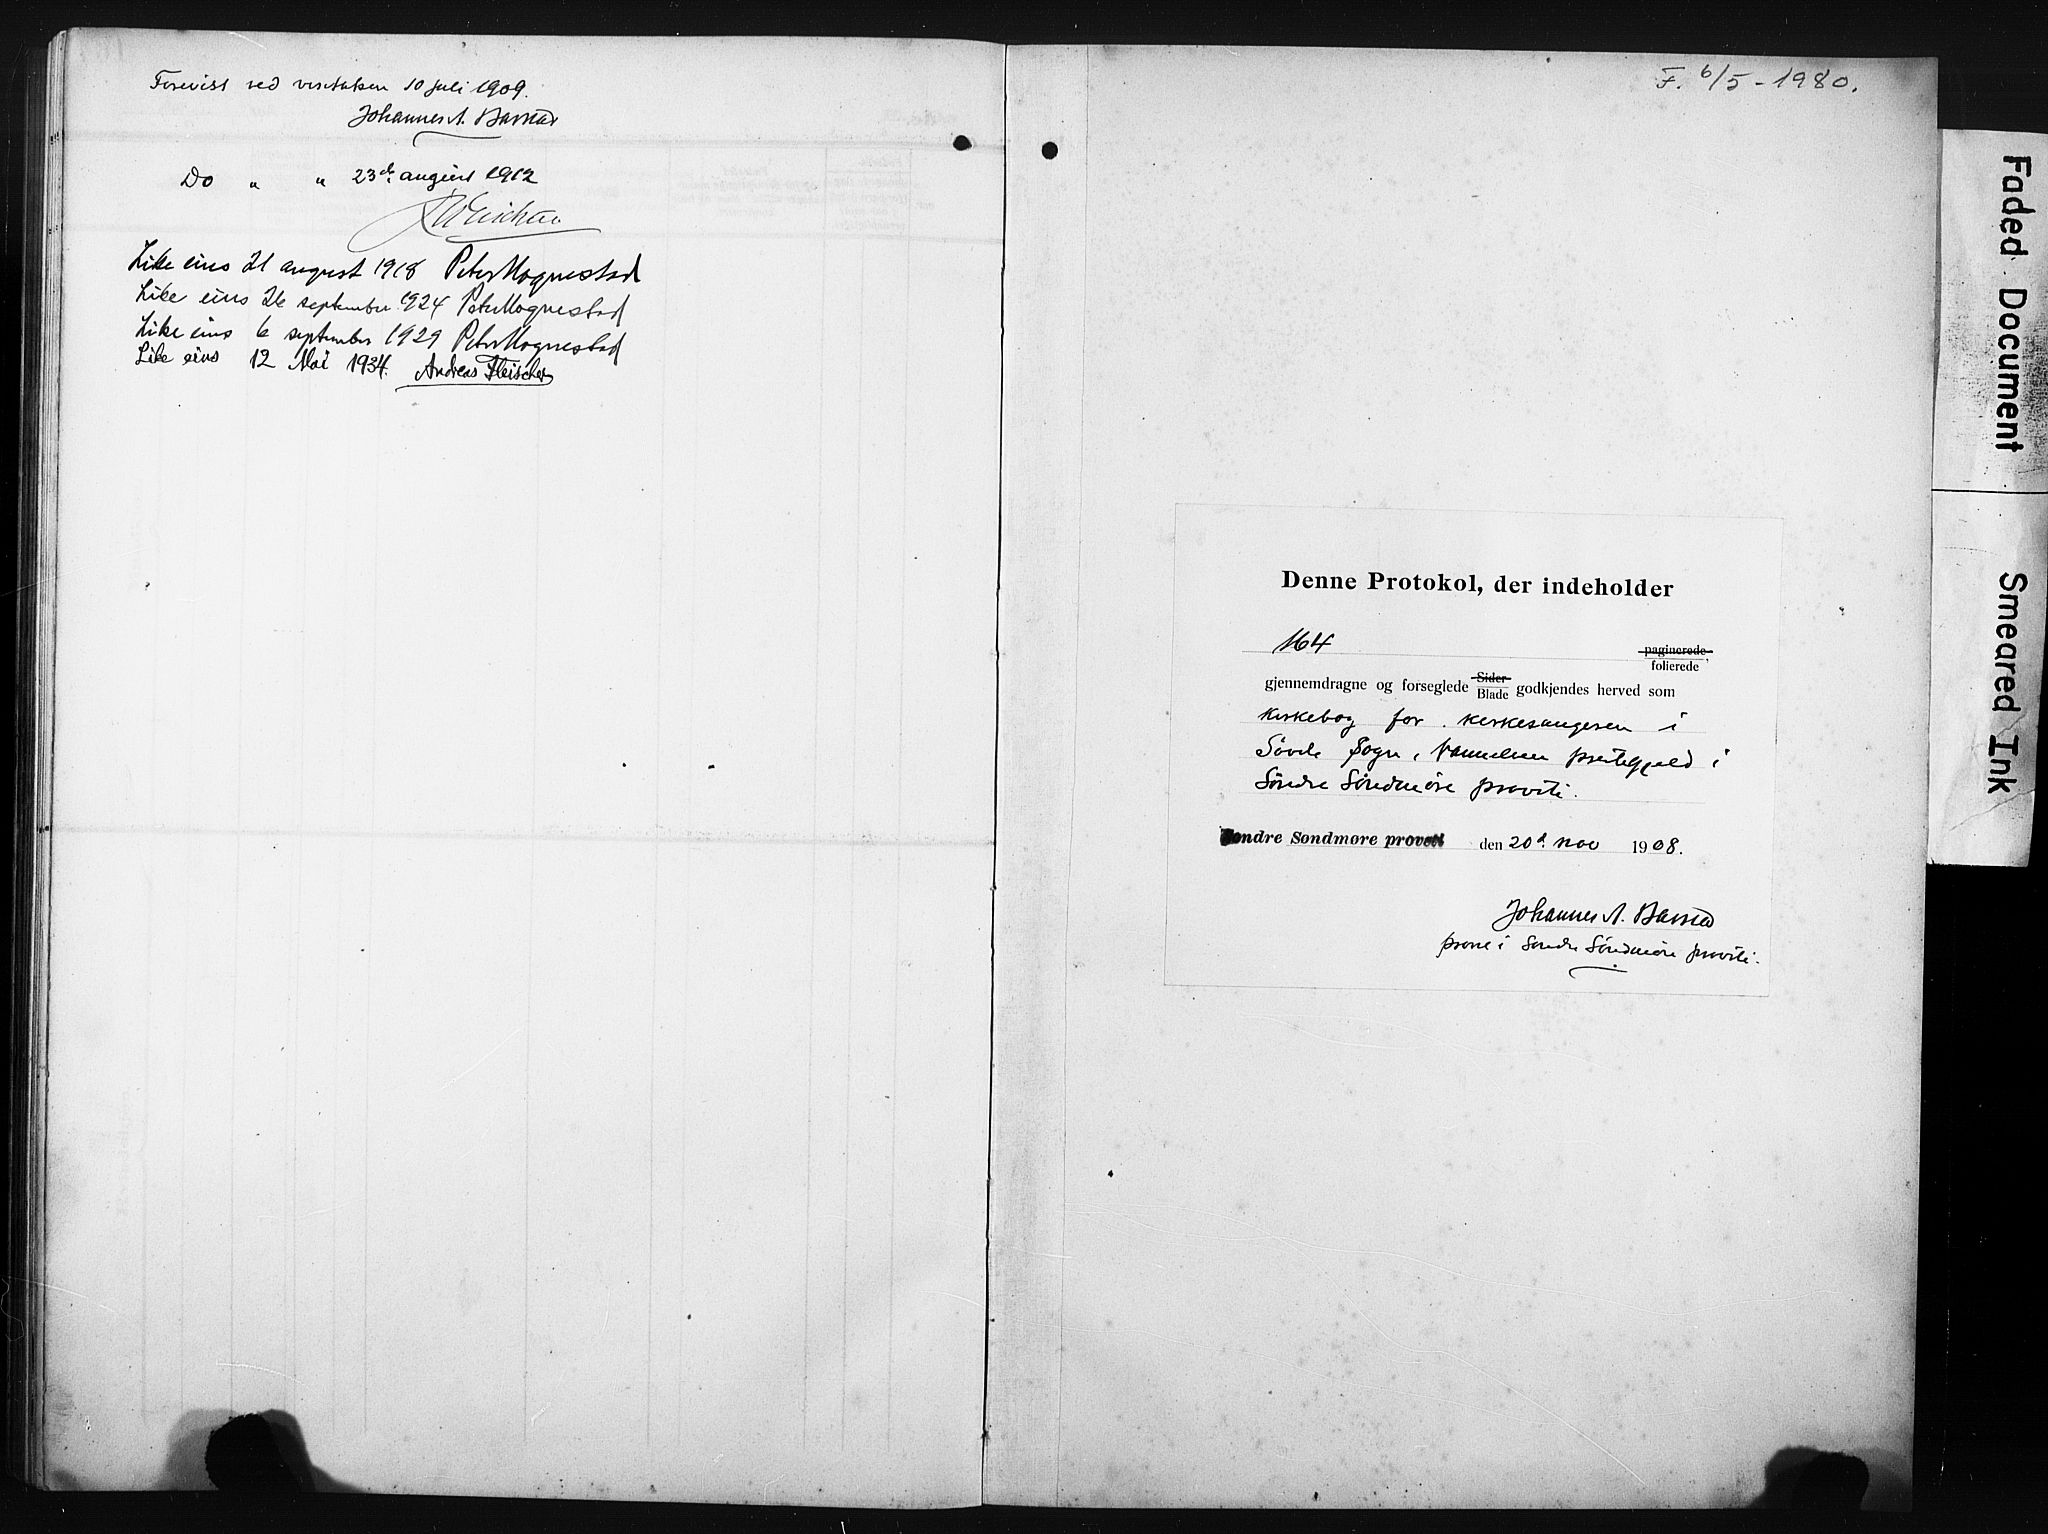 Forevist ved visitatsen 10 juli 1909.
Johannes A. Barstad
Do " " 23de august 1912
Like eins 21 august 1918 Peter Hognestad
Like eins 26 september 1924 Peter Hognestad
Like eins 6 september 1929 Peter Hognestad
Like eins 12 Mai 1934. Andreas Fleischer
F. 6/5 - 1980.
Denne Protokol, der indeholder
164 paginerede
folierede,
gjennemdragne og forseglede Sider
Blade godkjendes herved som
kirkebog for kirkesangeren i
Søvde Sogn, Vannelven prestegjeld i
Søndre Søndmøre provsti.
Søndre Søndmøre provsti den 20d. nov 1908.
Johannes A. Barstad
provst i Søndre Søndmøre provsti.
Faded Document
Smeared Ink